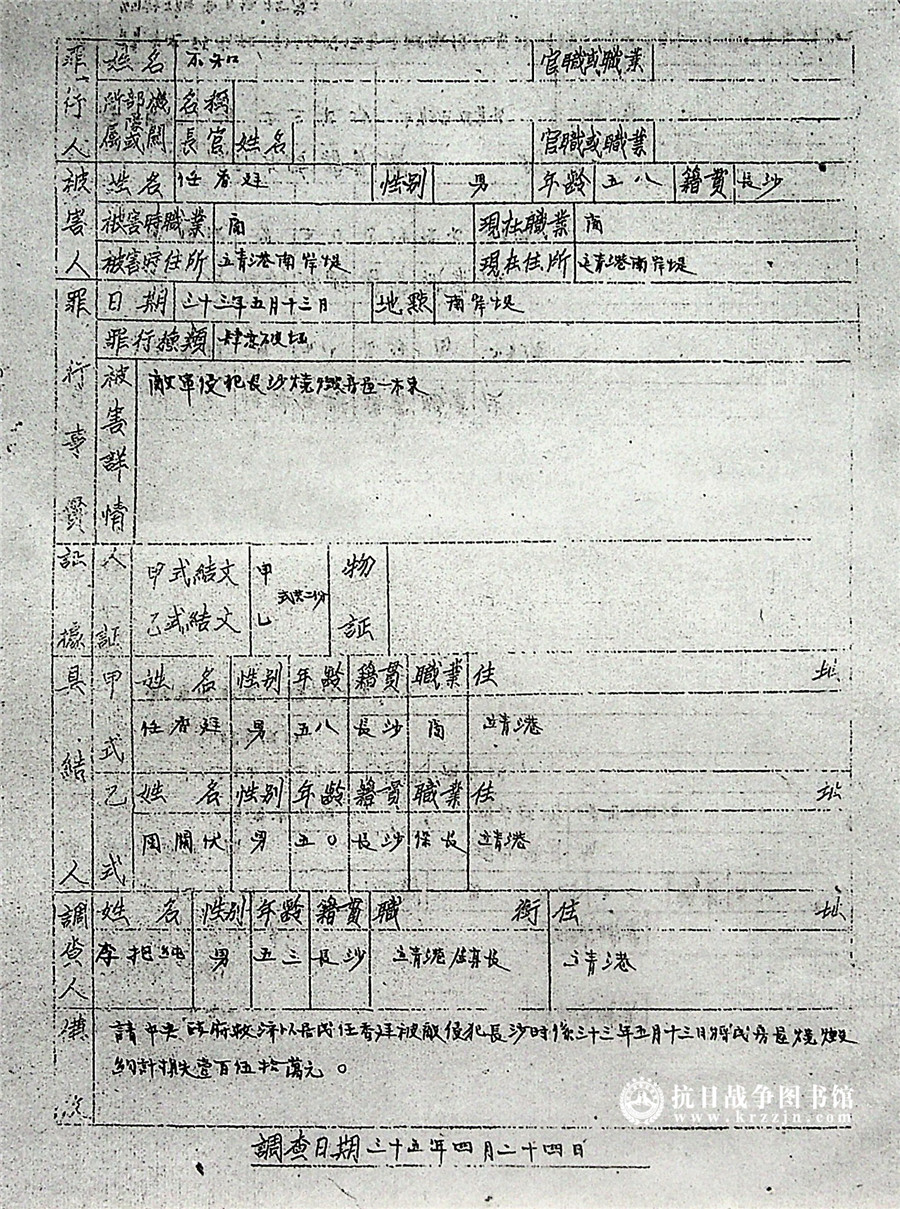 罪行人 姓名 不知 官職或職業
所屬部隊或機關 名稱
長官 姓名 官職或職業
被害人 姓名 任香廷 性别 男 年龄 五八 籍貫 長沙
被害時職業 商 現在職業 商
被害時住所 靖港南岸堤 現在住所 靖港南岸堤
罪行事實 日期 三十三年五月十三日 地點 南岸堤
罪行種類 肆意破坏
被害詳情 敵軍侵犯長沙燒燬房屋一
証據 人証 甲式結文 乙式結文 甲 乙 式共二份 物証
具結人 甲式 姓名 性别 年齡 籍貫 職業 住址
任香廷 男 五八 長沙 商 靖港
乙式 姓名 性别 年齡 籍貫 職業 住址
開伏 男 五〇 長沙 保長 靖港
調查人 姓名 性别 年齡 籍貫 職銜 住址
李 男 五三 長沙 靖港鎮長 靖港
備
請中央政府救济以居民任香廷被敵侵犯長沙時係三十三年五月十三日將房屋燒燬
約計損失壹百伍拾萬元。
調查日期三十五年四月二十四日
抗日战争图书馆
www.krzzjn.com